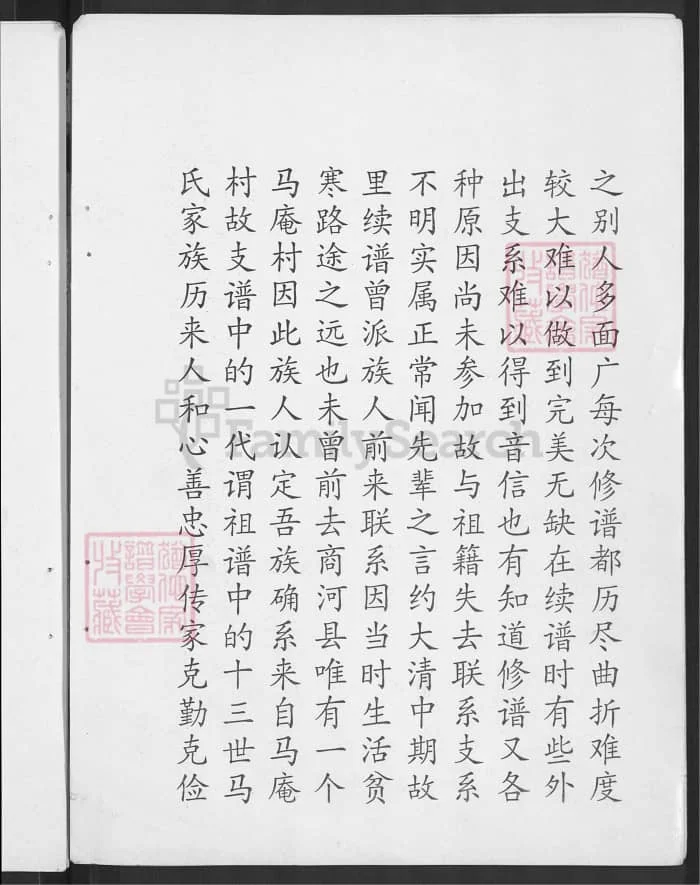 之别人多面广每次修谱都历尽曲折难度
较大难以做到完美无缺在续谱时有些外
出支系难以得到音信也有知道修谱又各
种原因尚未参加故与祖籍失去联系支系
不明实属正常闻先辈之言约大清中期故
里续谱曾派族人前来联系因当时生活贫
寒路途之远也未曾前去商河县唯有一个
马庵村因此族人认定吾族确系来自马庵
村故支谱中的一代谓祖谱中的十三世马
氏家族历来人和心善忠厚传家克勤克俭
FamilySearch